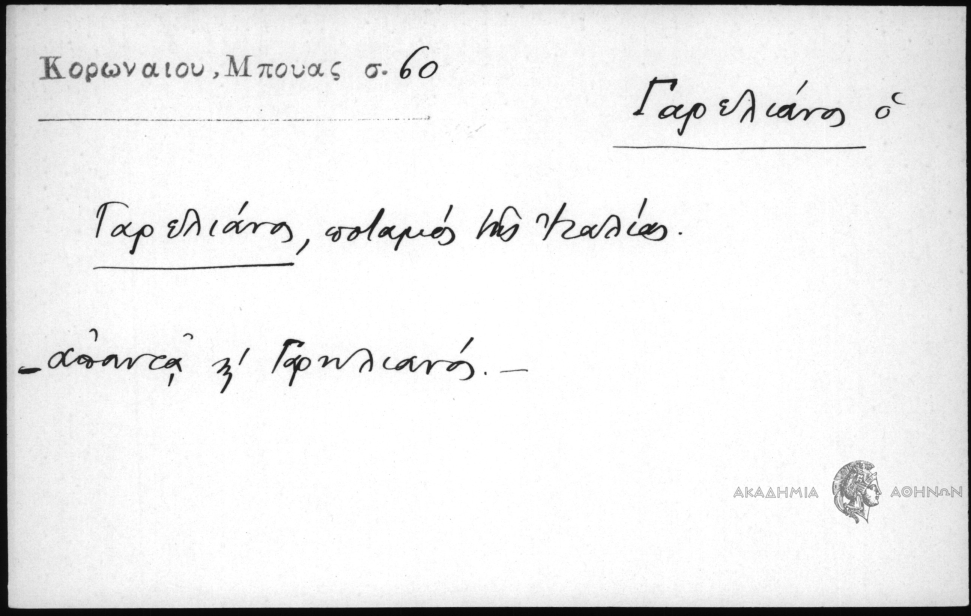 Κορωναιου, Μπουας σ. 60
Γαρελιάνος ὁ
Γαρελιάνος, ποταμός τῆς Ἰταλίας.
- ἀπαντᾷ κ' Γαρηλιανός. -
ΑΚΑΔΗΜΙΑ ΑΘΗΝΩΝ